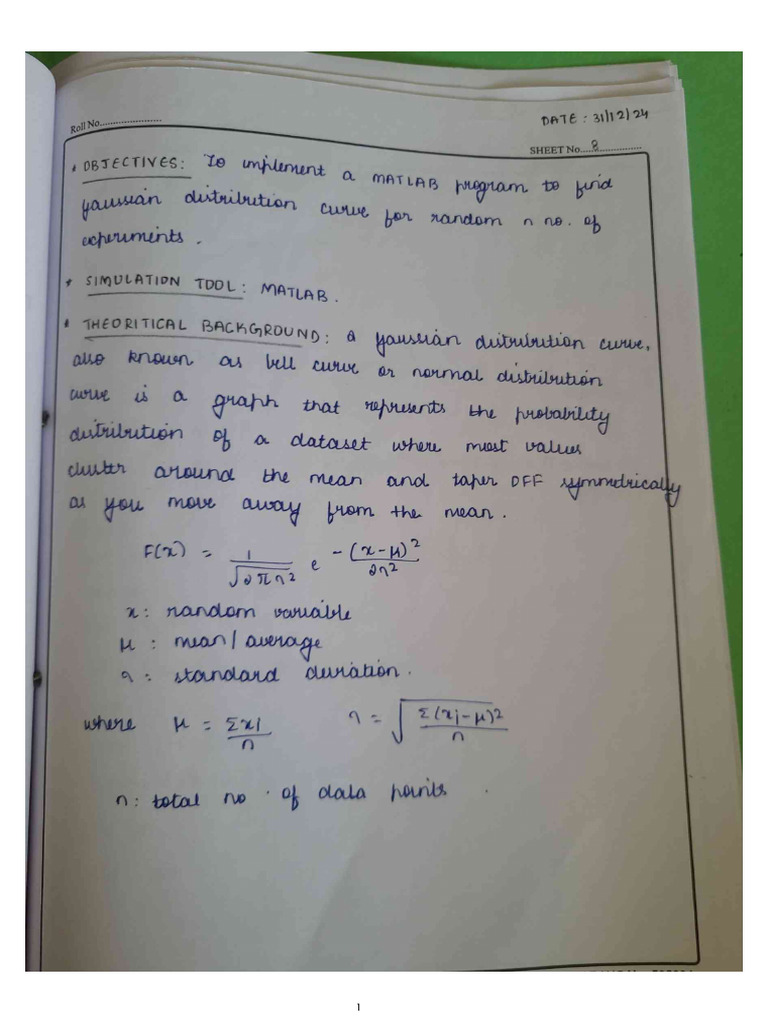 Roll No......................
DATE : 31/12/24
SHEET No....8...............
* OBJECTIVES: To implement a MATLAB program to find
gaussian distribution curve for random n no. of
experiments.
* SIMULATION TOOL: MATLAB.
* THEORITICAL BACKGROUND: A gaussian distribution curve,
also known as bell curve or normal distribution
curve is a graph that represents the probability
distribution of a dataset where most values
cluster around the mean and taper OFF symmetrically
as you move away from the mean.
F(x) = 1/√2πη² e -(x-μ)²/2η²
x: random variable
μ : mean/average
η: standard deviation.
where μ = Σxi/n η = √Σ(xi-μ)²/n
n: total no. of data points.
1